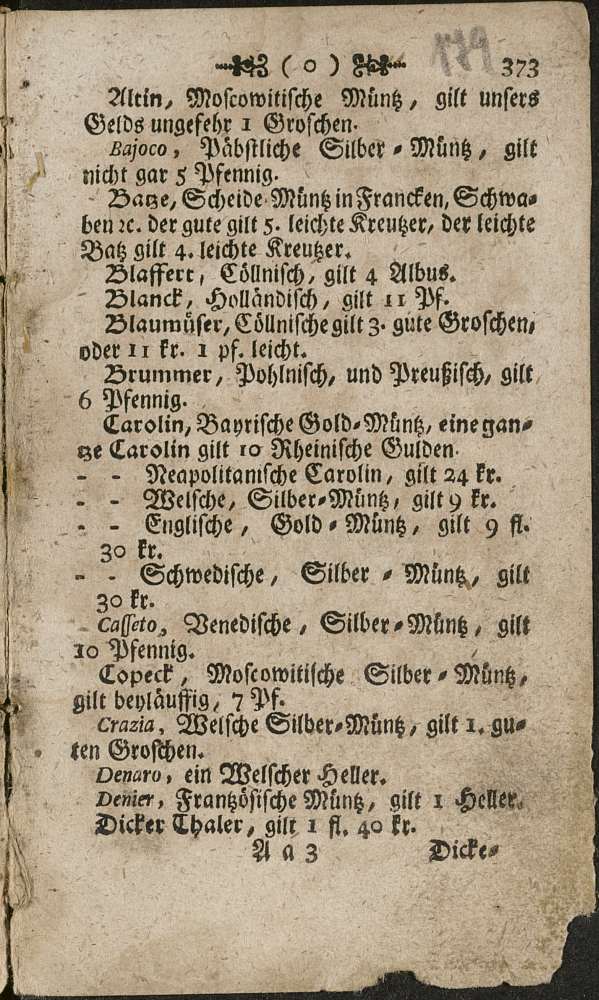 ( o ) 179 373
Altin, Moscowitische Müntz, gilt unsers
Gelds ungefehr 1 Groschen.
Bajoco, Päbstliche Silber-Müntz, gilt
nicht gar 5 Pfennig.
Batze, Scheide-Müntz in Francken, Schwa-
ben ꝛc. der gute gilt 5. leichte Kreutzer, der leichte
Batz gilt 4. leichte Kreutzer.
Blaffert, Cöllnisch, gilt 4 Albus.
Blanck, Holländisch, gilt 11 Pf.
Blaumüser, Cöllnische gilt 3. gute Groschen,
oder 11 kr. 1 pf. leicht.
Brummer, Pohlnisch, und Preußisch, gilt
6 Pfennig.
Carolin, Bayrische Gold-Müntz, eine gan-
tze Carolin gilt 10 Rheinische Gulden.
- - Neapolitanische Carolin, gilt 24 kr.
- - Welsche, Silber-Müntz, gilt 9 kr.
- - Englische, Gold-Müntz, gilt 9 fl.
30 kr.
- - Schwedische, Silber-Müntz, gilt
30 kr.
Casseto, Venedische, Silber-Müntz, gilt
10 Pfennig.
Copeck, Moscowitische Silber-Müntz,
gilt beyläuffig, 7 Pf.
Crazia, Welsche Silber-Müntz, gilt 1. gu-
ten Groschen.
Denaro, ein Welscher Heller.
Denier, Frantzösische Müntz, gilt 1 Heller.
Dicker Thaler, gilt 1 fl. 40 kr.
A a 3 Dicke-